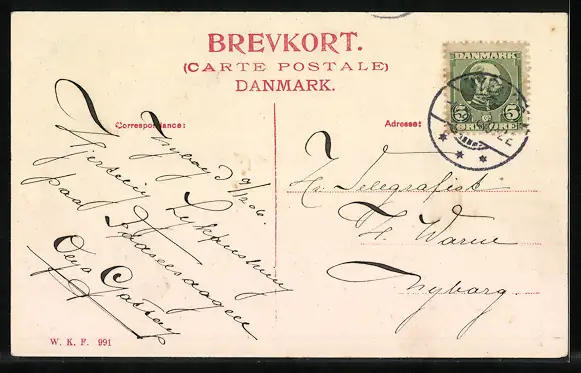 BREVKORT.
(CARTE POSTALE)
DANMARK.
DANMARK
5 5
ØRE ØRE
Correspondance:
Adresse:
Nyborg 9/12 06.
Hjertelig Lykønskning
paa Fødselsdagen
Hr. Telegrafist
H. Warne
Nyborg.
W. K. F. 991